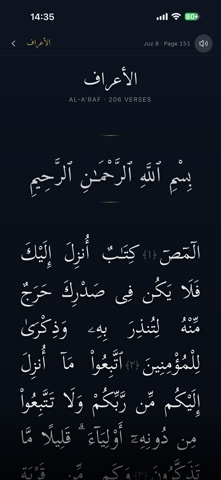 14:35
80
الأعراف
Juz 8 · Page 151
الأعراف
AL-A'RAF · 206 VERSES
بِسْمِ ٱللَّهِ ٱلرَّحْمَـٰنِ ٱلرَّحِيمِ
الٓمٓصٓ ﴿١﴾ كِتَـٰبٌ أُنزِلَ إِلَيْكَ
فَلَا يَكُن فِى صَدْرِكَ حَرَجٌ
مِّنْهُ لِتُنذِرَ بِهِۦ وَذِكْرَىٰ
لِلْمُؤْمِنِينَ ﴿٢﴾ ٱتَّبِعُوا۟ مَآ أُنزِلَ
إِلَيْكُم مِّن رَّبِّكُمْ وَلَا تَتَّبِعُوا۟
مِن دُونِهِۦٓ أَوْلِيَآءَ ۗ قَلِيلًا مَّا
تَذَكَّرُونَ ﴿٣﴾ وَكَم مِّن قَرْيَةٍ